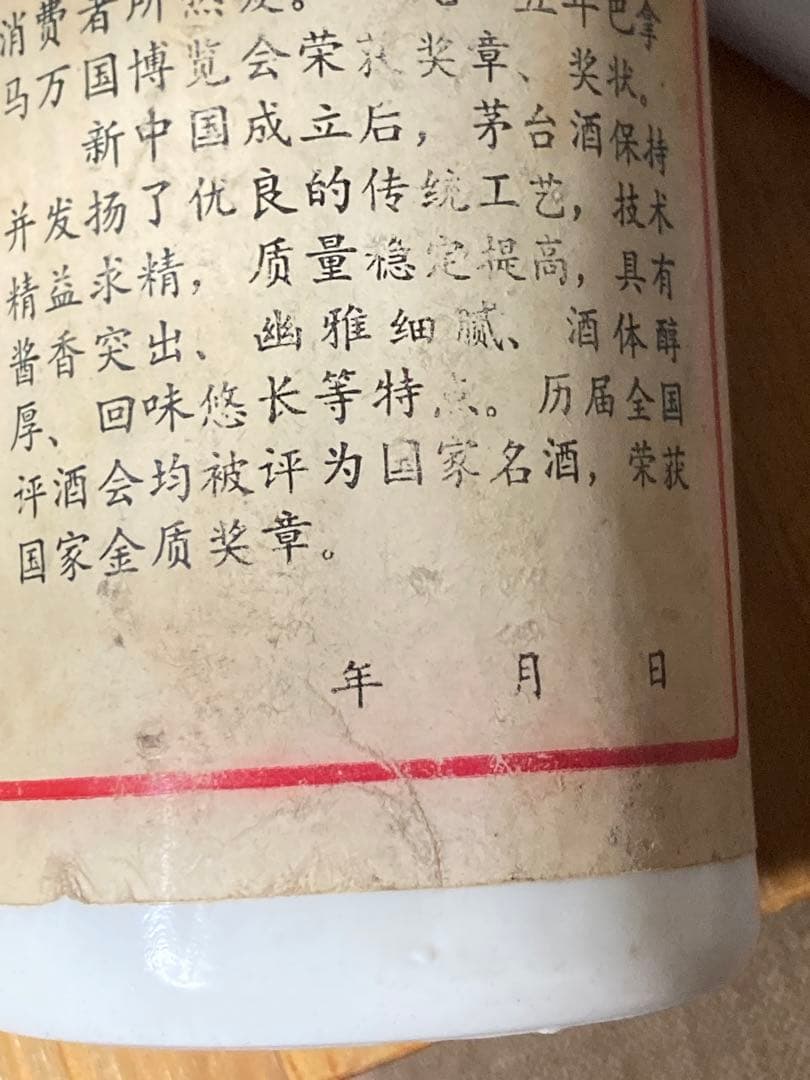 消费者所热爱。 五年巴拿
马万国博览会荣获奖章、奖状。
新中国成立后，茅台酒保持
并发扬了优良的传统工艺，技术
精益求精，质量稳定提高，具有
酱香突出、幽雅细腻、酒体醇
厚、回味悠长等特点。历届全国
评酒会均被评为国家名酒，荣获
国家金质奖章。
年 月 日